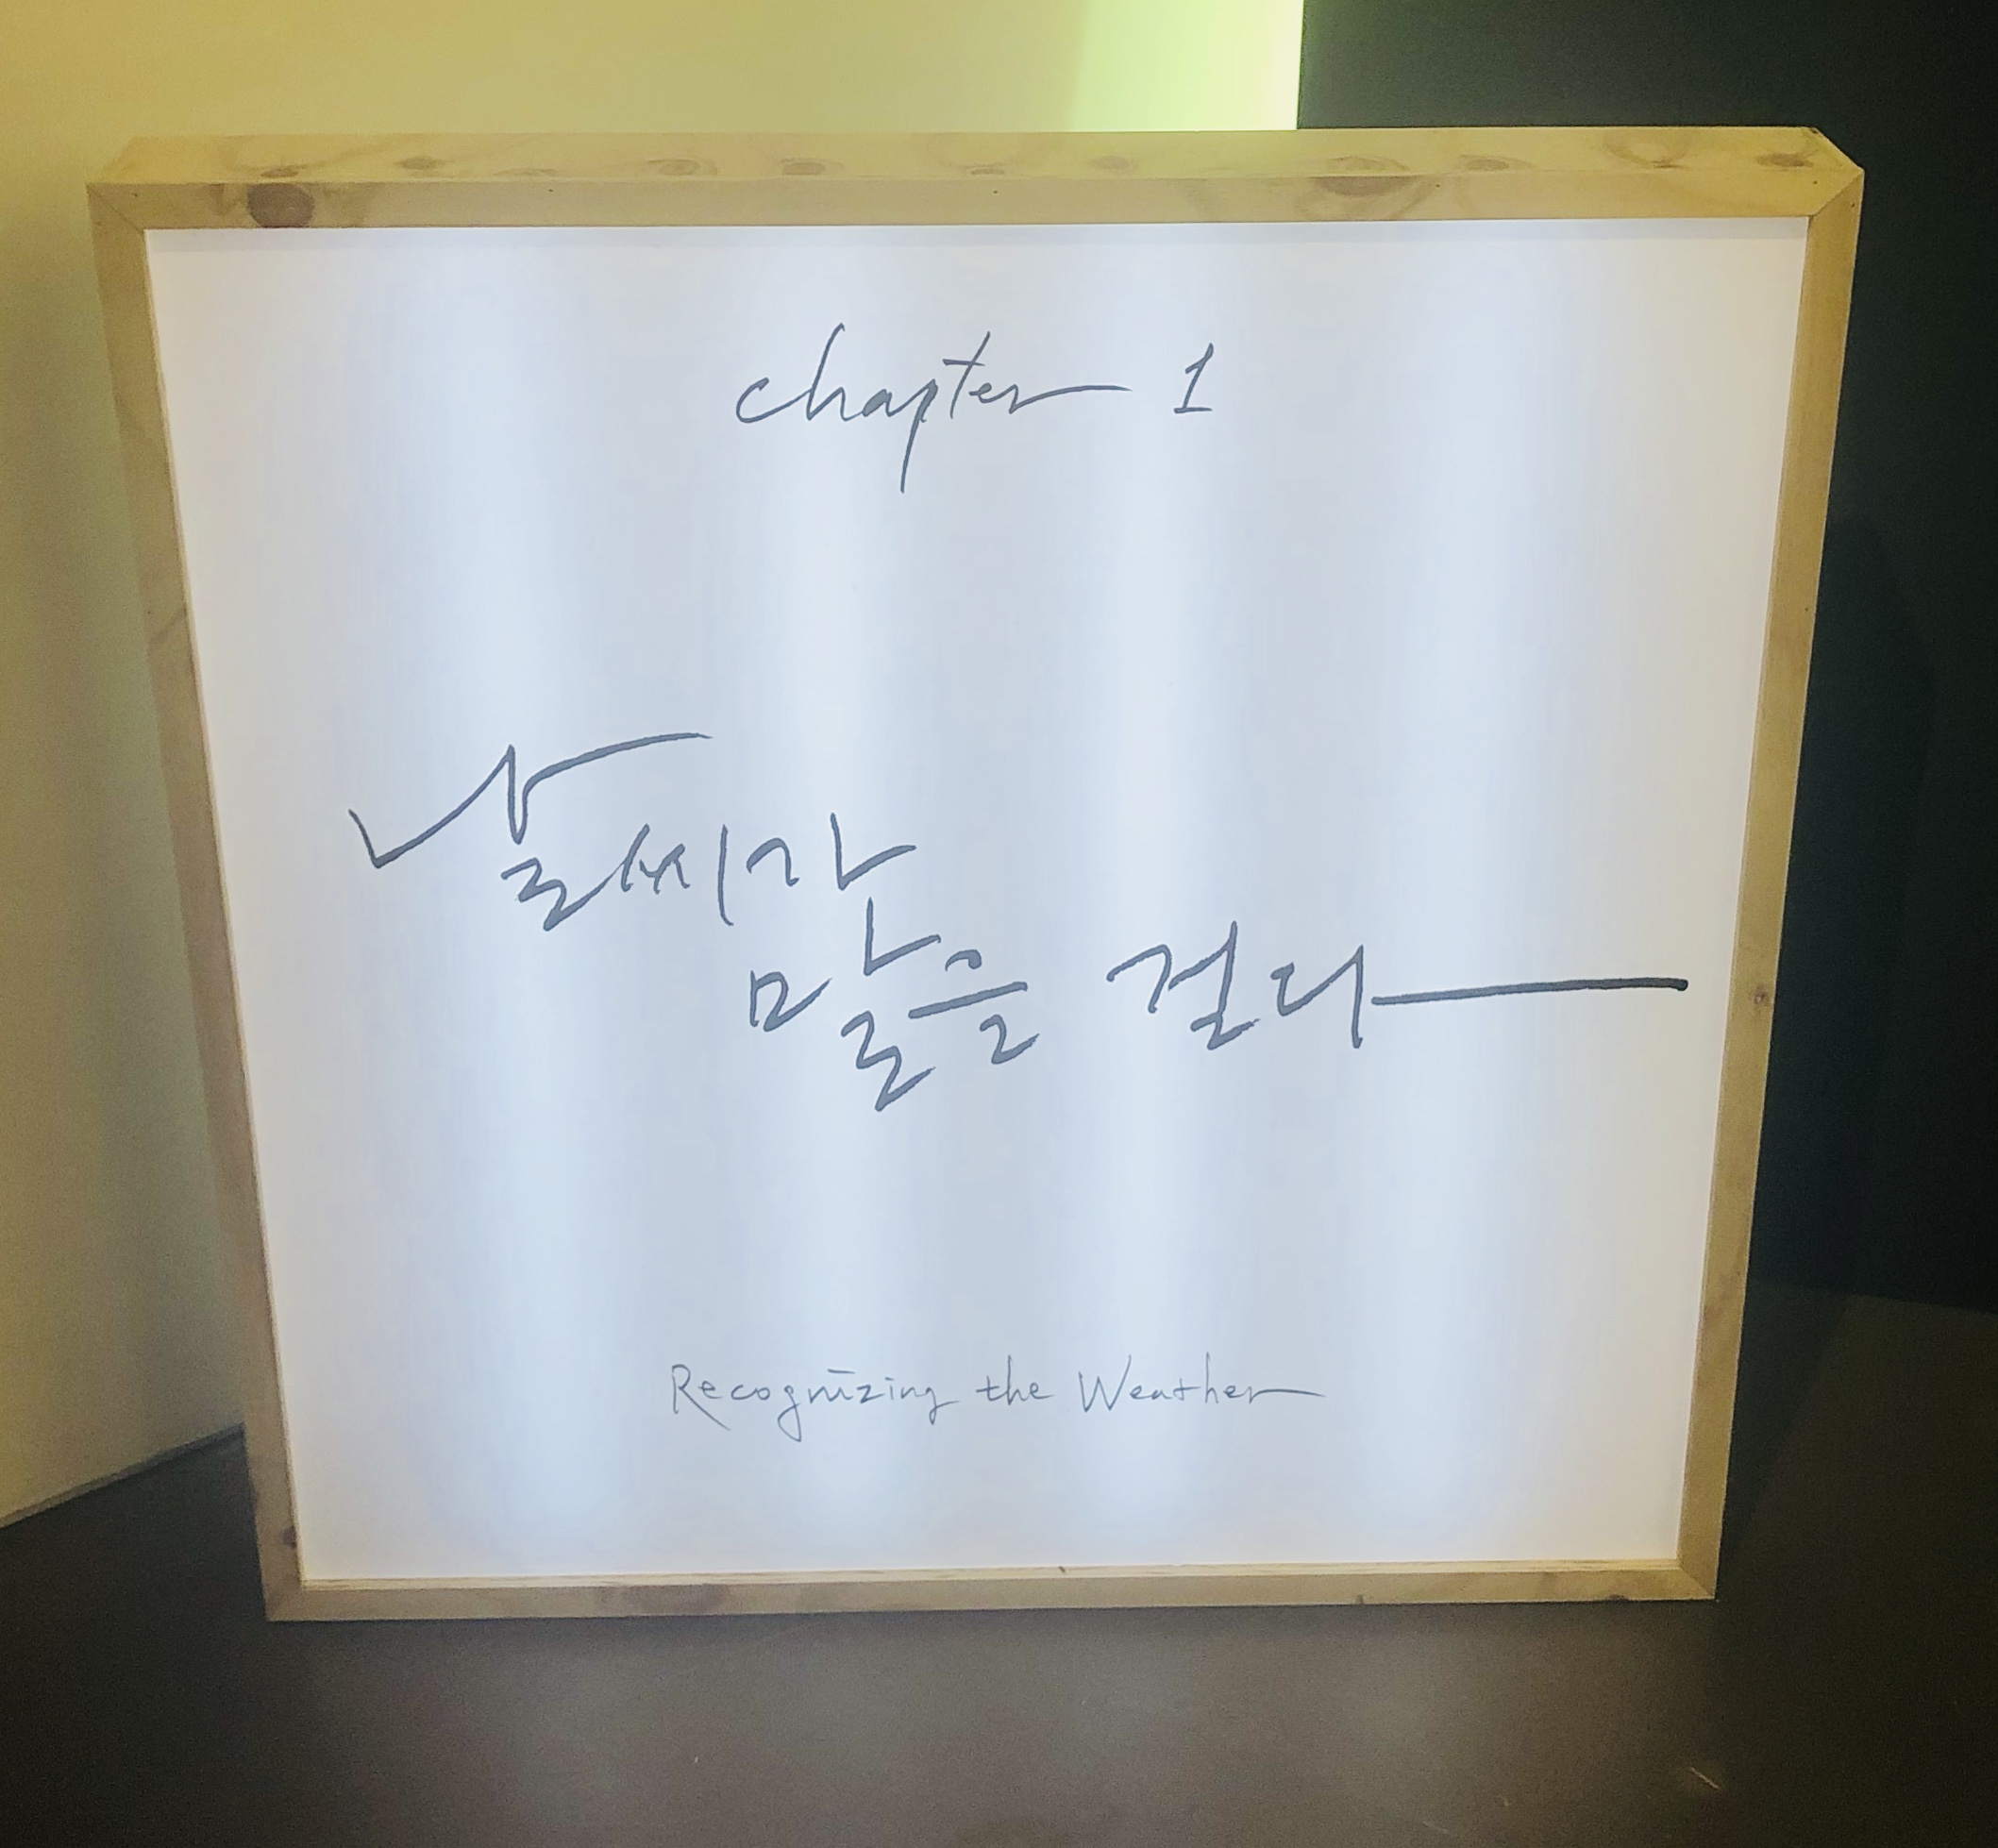 chapter 1
날씨가
말을 걸다
Recognizing the Weather